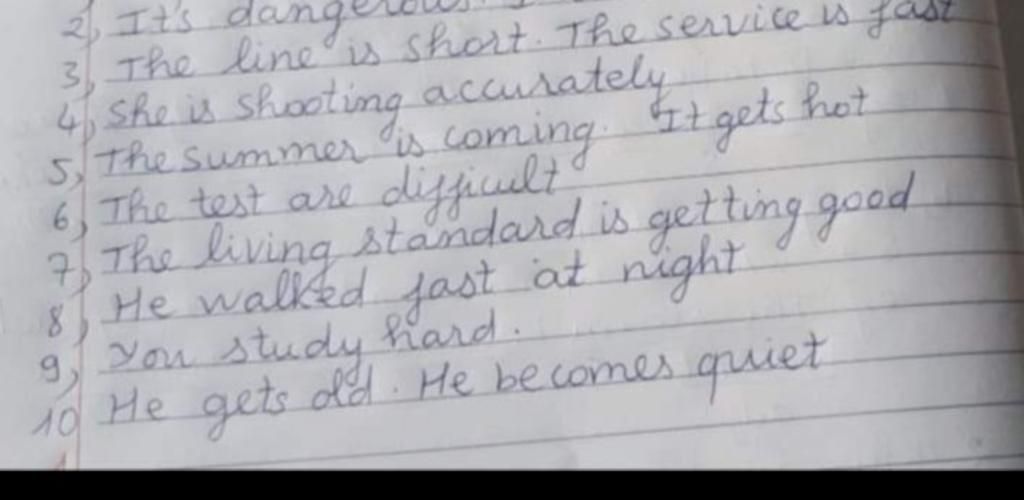 2, It's dangerous.
3, The line is short. The service is fast
4, She is shooting accurately
5, The summer is coming. It gets hot
6, The test are difficult
7, The living standard is getting good
8, He walked fast at night
9, You study hard.
10 He gets old. He becomes quiet